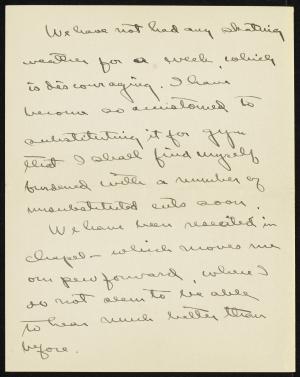 We have not had any skating
weather for a week, which
is discouraging. I have
become so acustomed to
substituting it for gym
that I shall find myself
burdened with a number of
unsubstituted cuts soon.
We have been reseated in
chapel – which moves me
one pew forward, where I
do not seem to be able
to hear much better than
before.